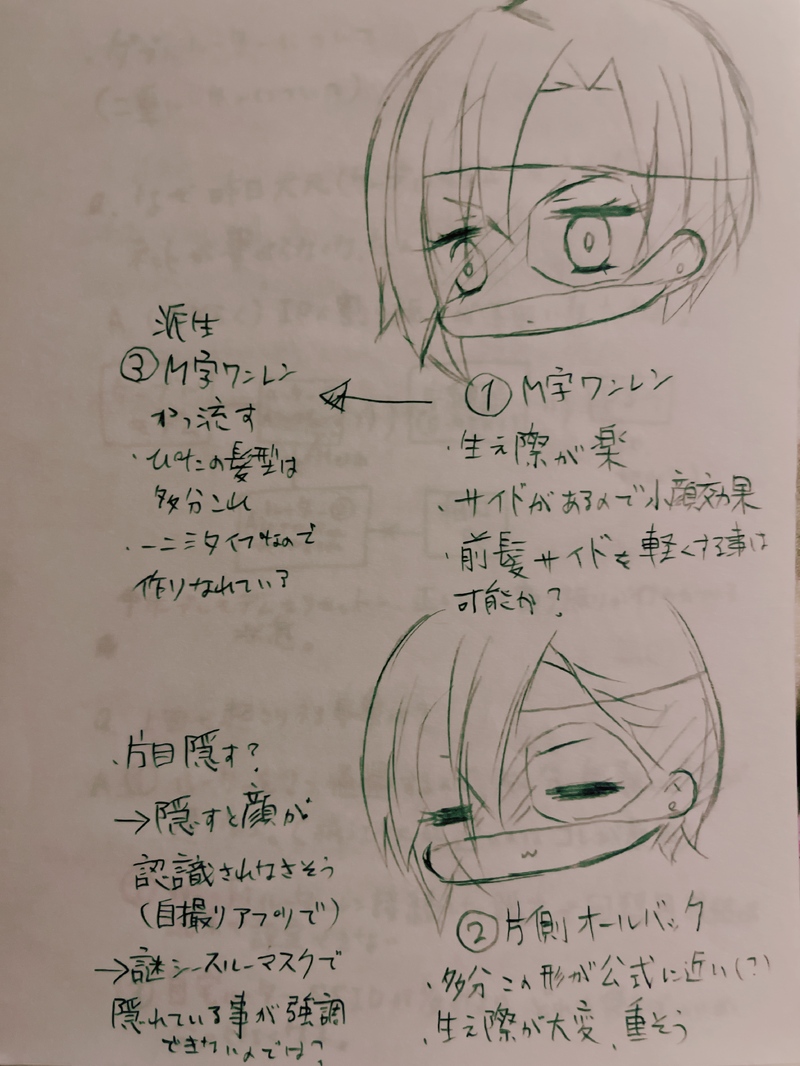 ① M字ワンレン
・生え際が楽
・サイドがあるので小顔効果
・前髪サイドを軽くする事は
可能か？
派生
③ M字ワンレン
かつ流す
・ぴたの髪型は
多分これ
・一ニミタイプなので
作りなれてい？
② 片側オールバック
・多分この形が公式に近い(?)
・生え際が大変、重そう
・片目隠す？
→隠すと顔が
認識されなさそう
(自撮りアプリで)
→謎シースルーマスクで
隠れている事が強調
できないのでは？